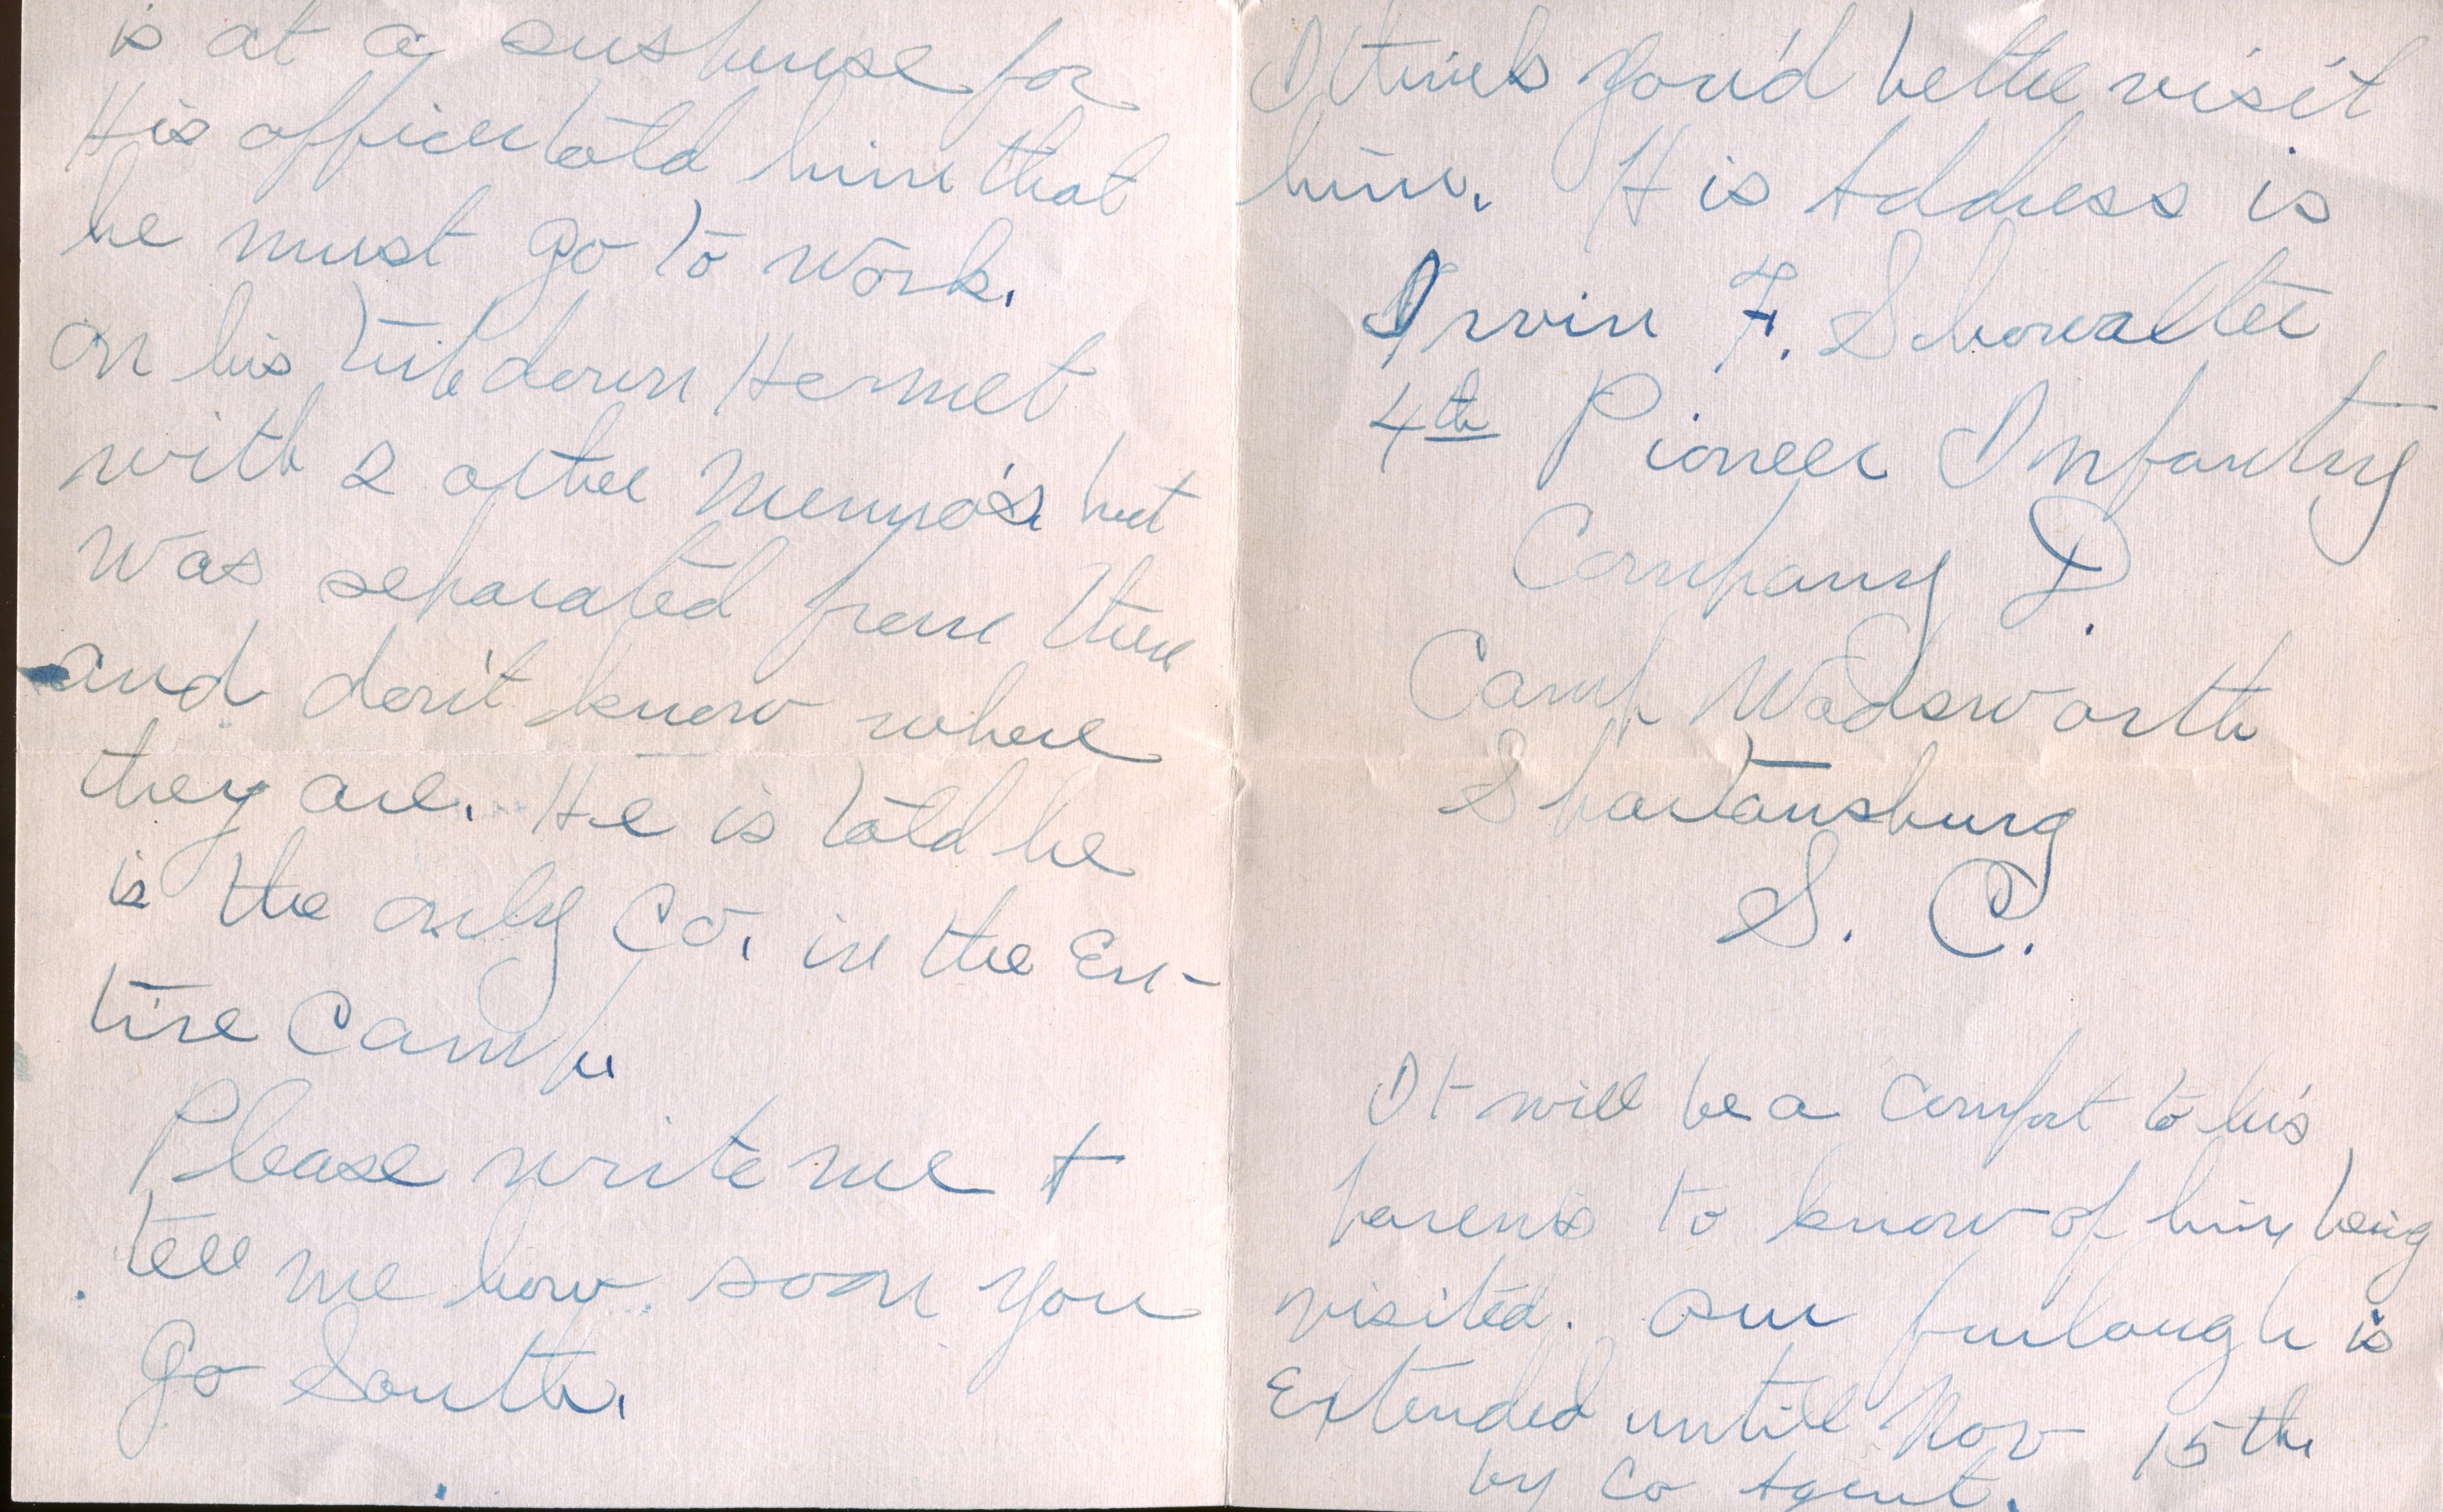 is at a suspense for
His officer told him that
he must go to work.
On his trip down He met
with 2 other Menno's but
was separated from them
and don't know where
they are. He is told he
is the only Co. in the En-
tire Camp.
Please write me +
tell me how soon you
go South.
I think you'd better visit
him. His Address is
Irvin F. Showalter
4th Pioneer Infantry
Company D.
Camp Wadsworth
Spartansburg
S. C.
It will be a comfort to his
parents to know of him being
visited. Our furlough is
Extended untill Nov 15th
by Co Agent.